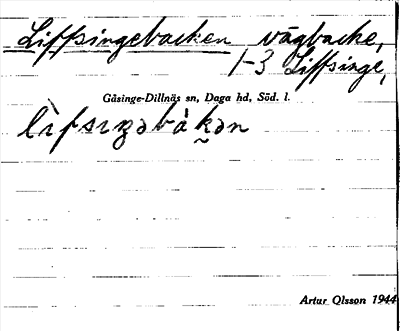 Liffsingebacken vägbacke,
1-3 Liffsinge,
Gåsinge-Dillnäs sn, Daga hd, Söd. l.
lìfsıŋəbàk̬ən
Artur Olsson 1944